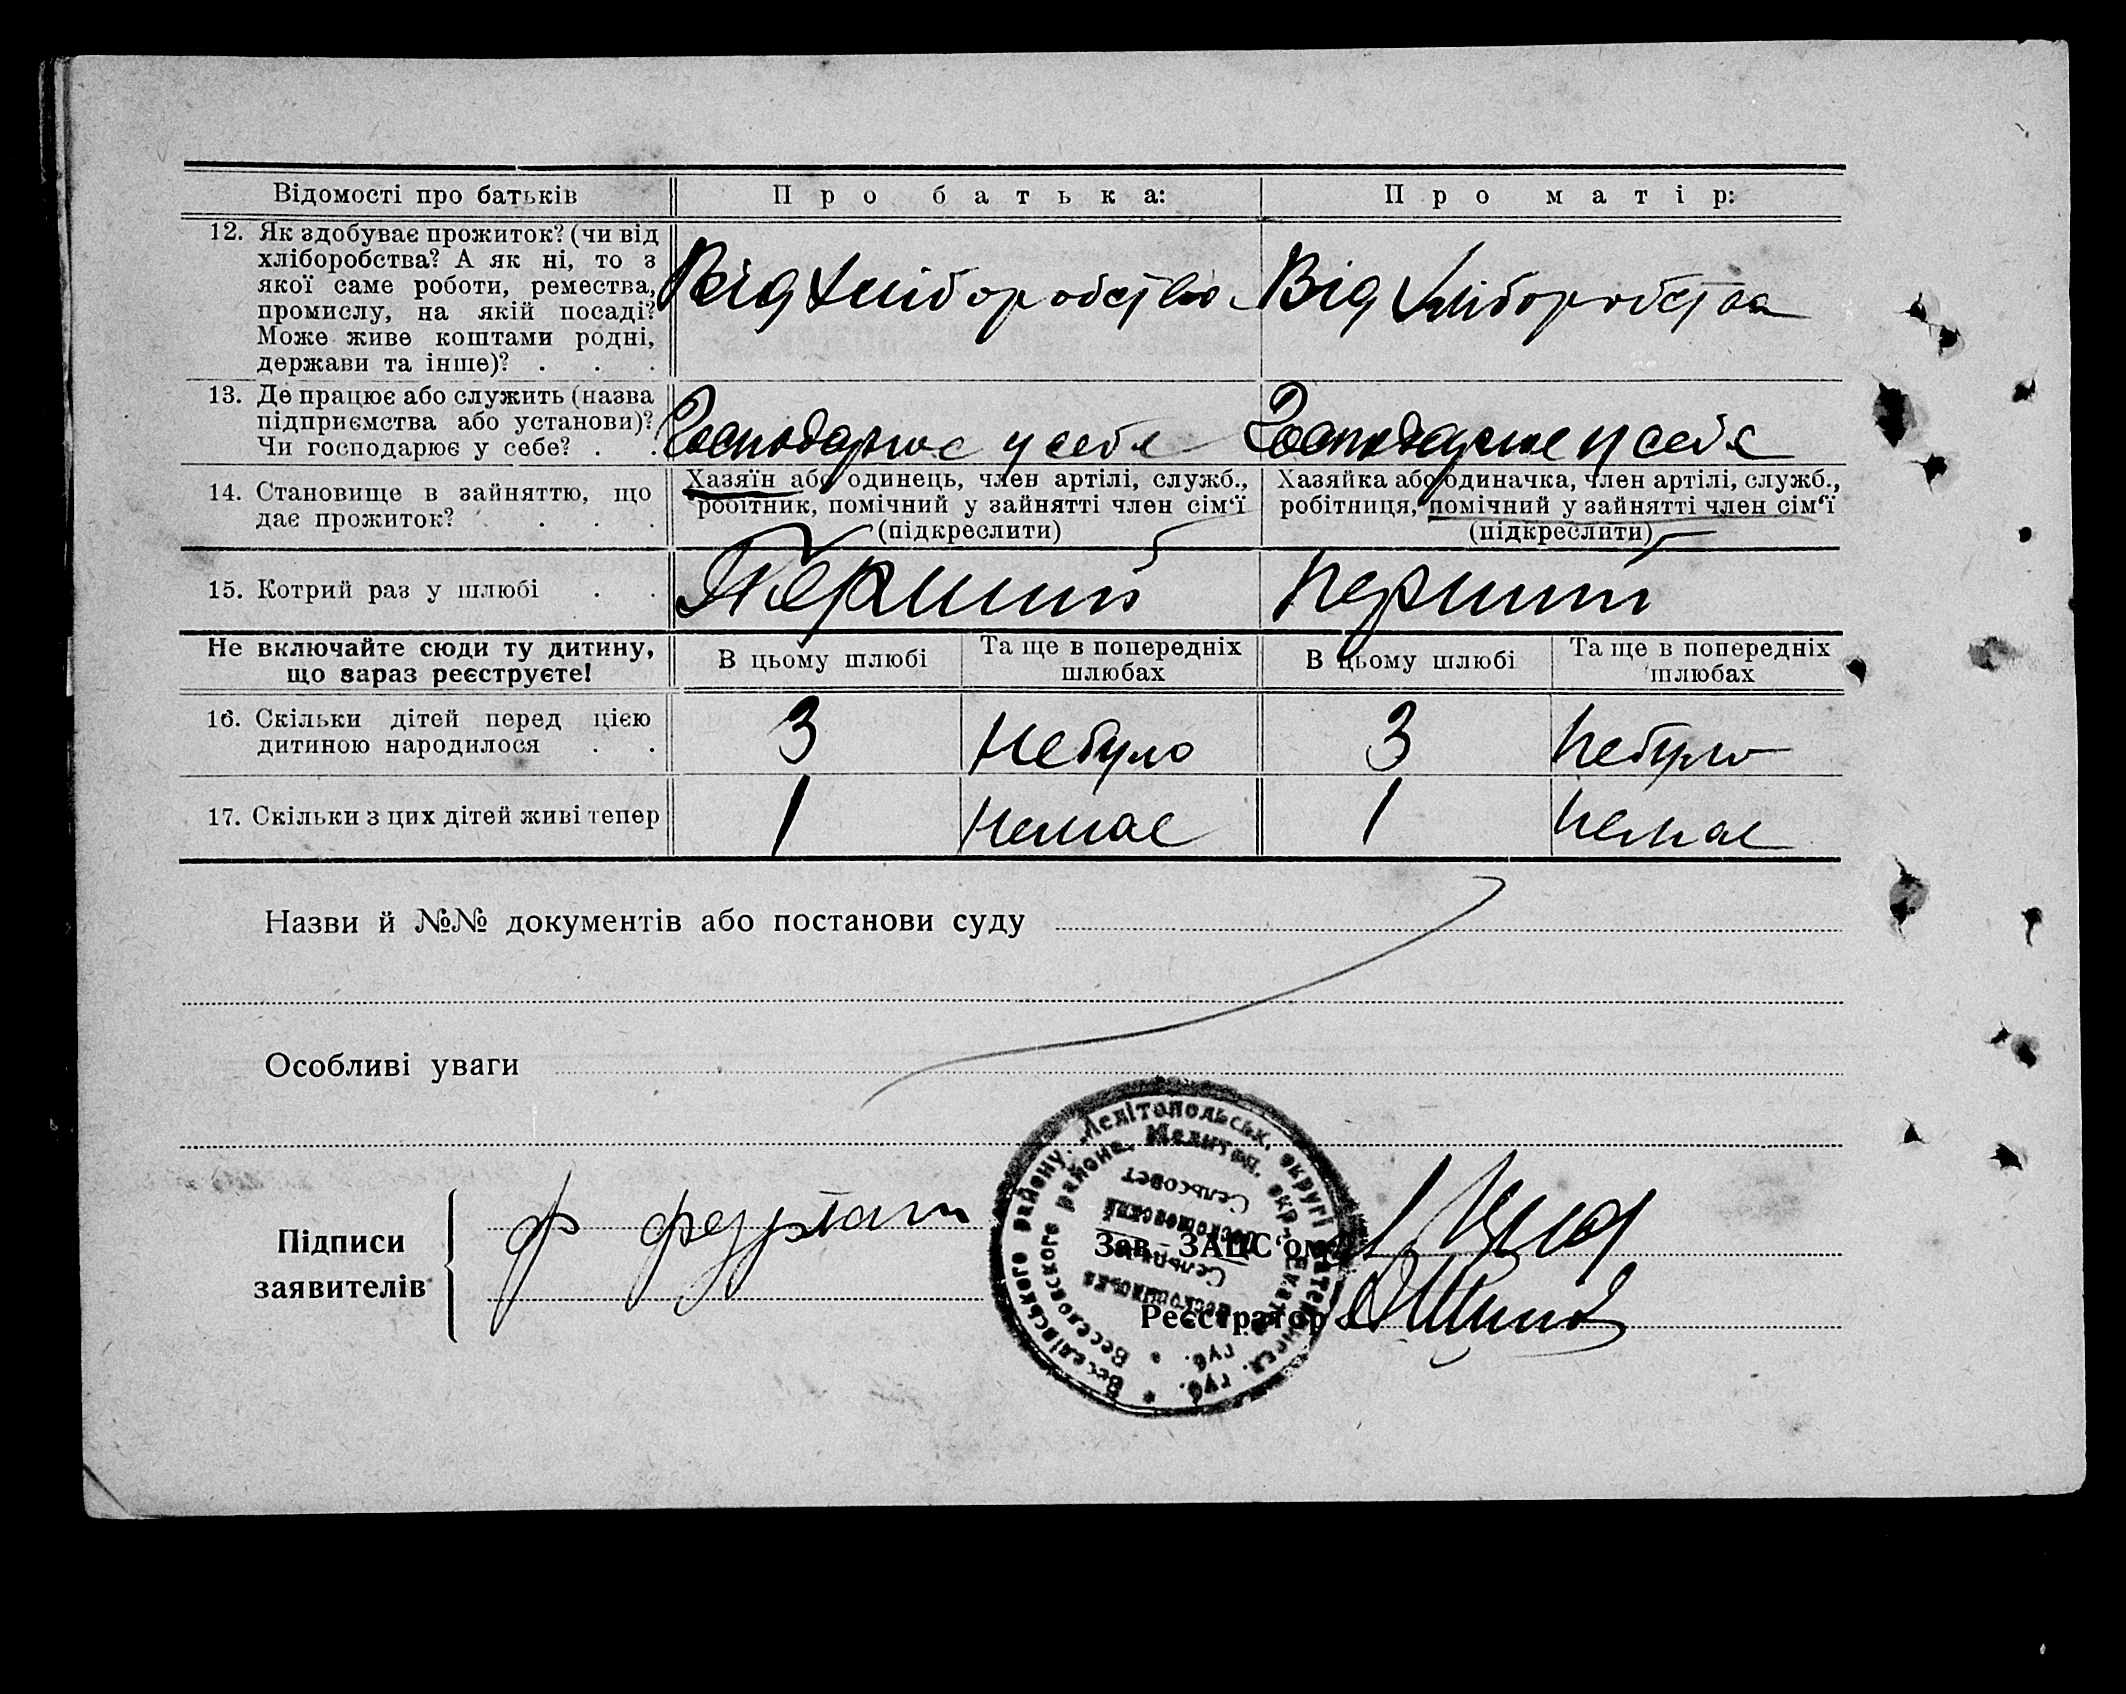 Відомості про батьків
Про батька:
Про матір:
12. Як здобуває прожиток? (чи від
хліборобства? А як ні, то з
якої саме роботи, ремества,
промислу, на якій посаді?
Може живе коштами родні,
держави та інше)? . . .
Від хліборобства
Від хліборобства
13. Де працює або служить (назва
підприємства або установи)?
Чи господарює у себе? . .
Господарює у себе
Господарює у себе
14. Становище в зайняттю, що
дає прожиток? . . .
Хазяїн або одинець, член артілі, служб.,
робітник, помічний у зайнятті член сім‘ї
(підкреслити)
Хазяйка або одиначка, член артілі, служб.,
робітниця, помічний у зайнятті член сім‘ї
(підкреслити)
15. Котрий раз у шлюбі . .
Перший
Перший
Не включайте сюди ту дитину,
що зараз реєструєте!
В цьому шлюбі
Та ще в попередніх
шлюбах
В цьому шлюбі
Та ще в попередніх
шлюбах
16. Скільки дітей перед цією
дитиною народилося . .
3
Небуло
3
Небуло
17. Скільки з цих дітей живі тепер
1
Немає
1
Немає
Назви й №№ документів або постанови суду
Особливі уваги
Підписи
заявителів
Зав. ЗАЦС‘ом
Реєстратор
Веселівського району, Мелітопольськ. округі
Веселовского района, Мелитоп. окр.
Сельсовет
губ.
губ.